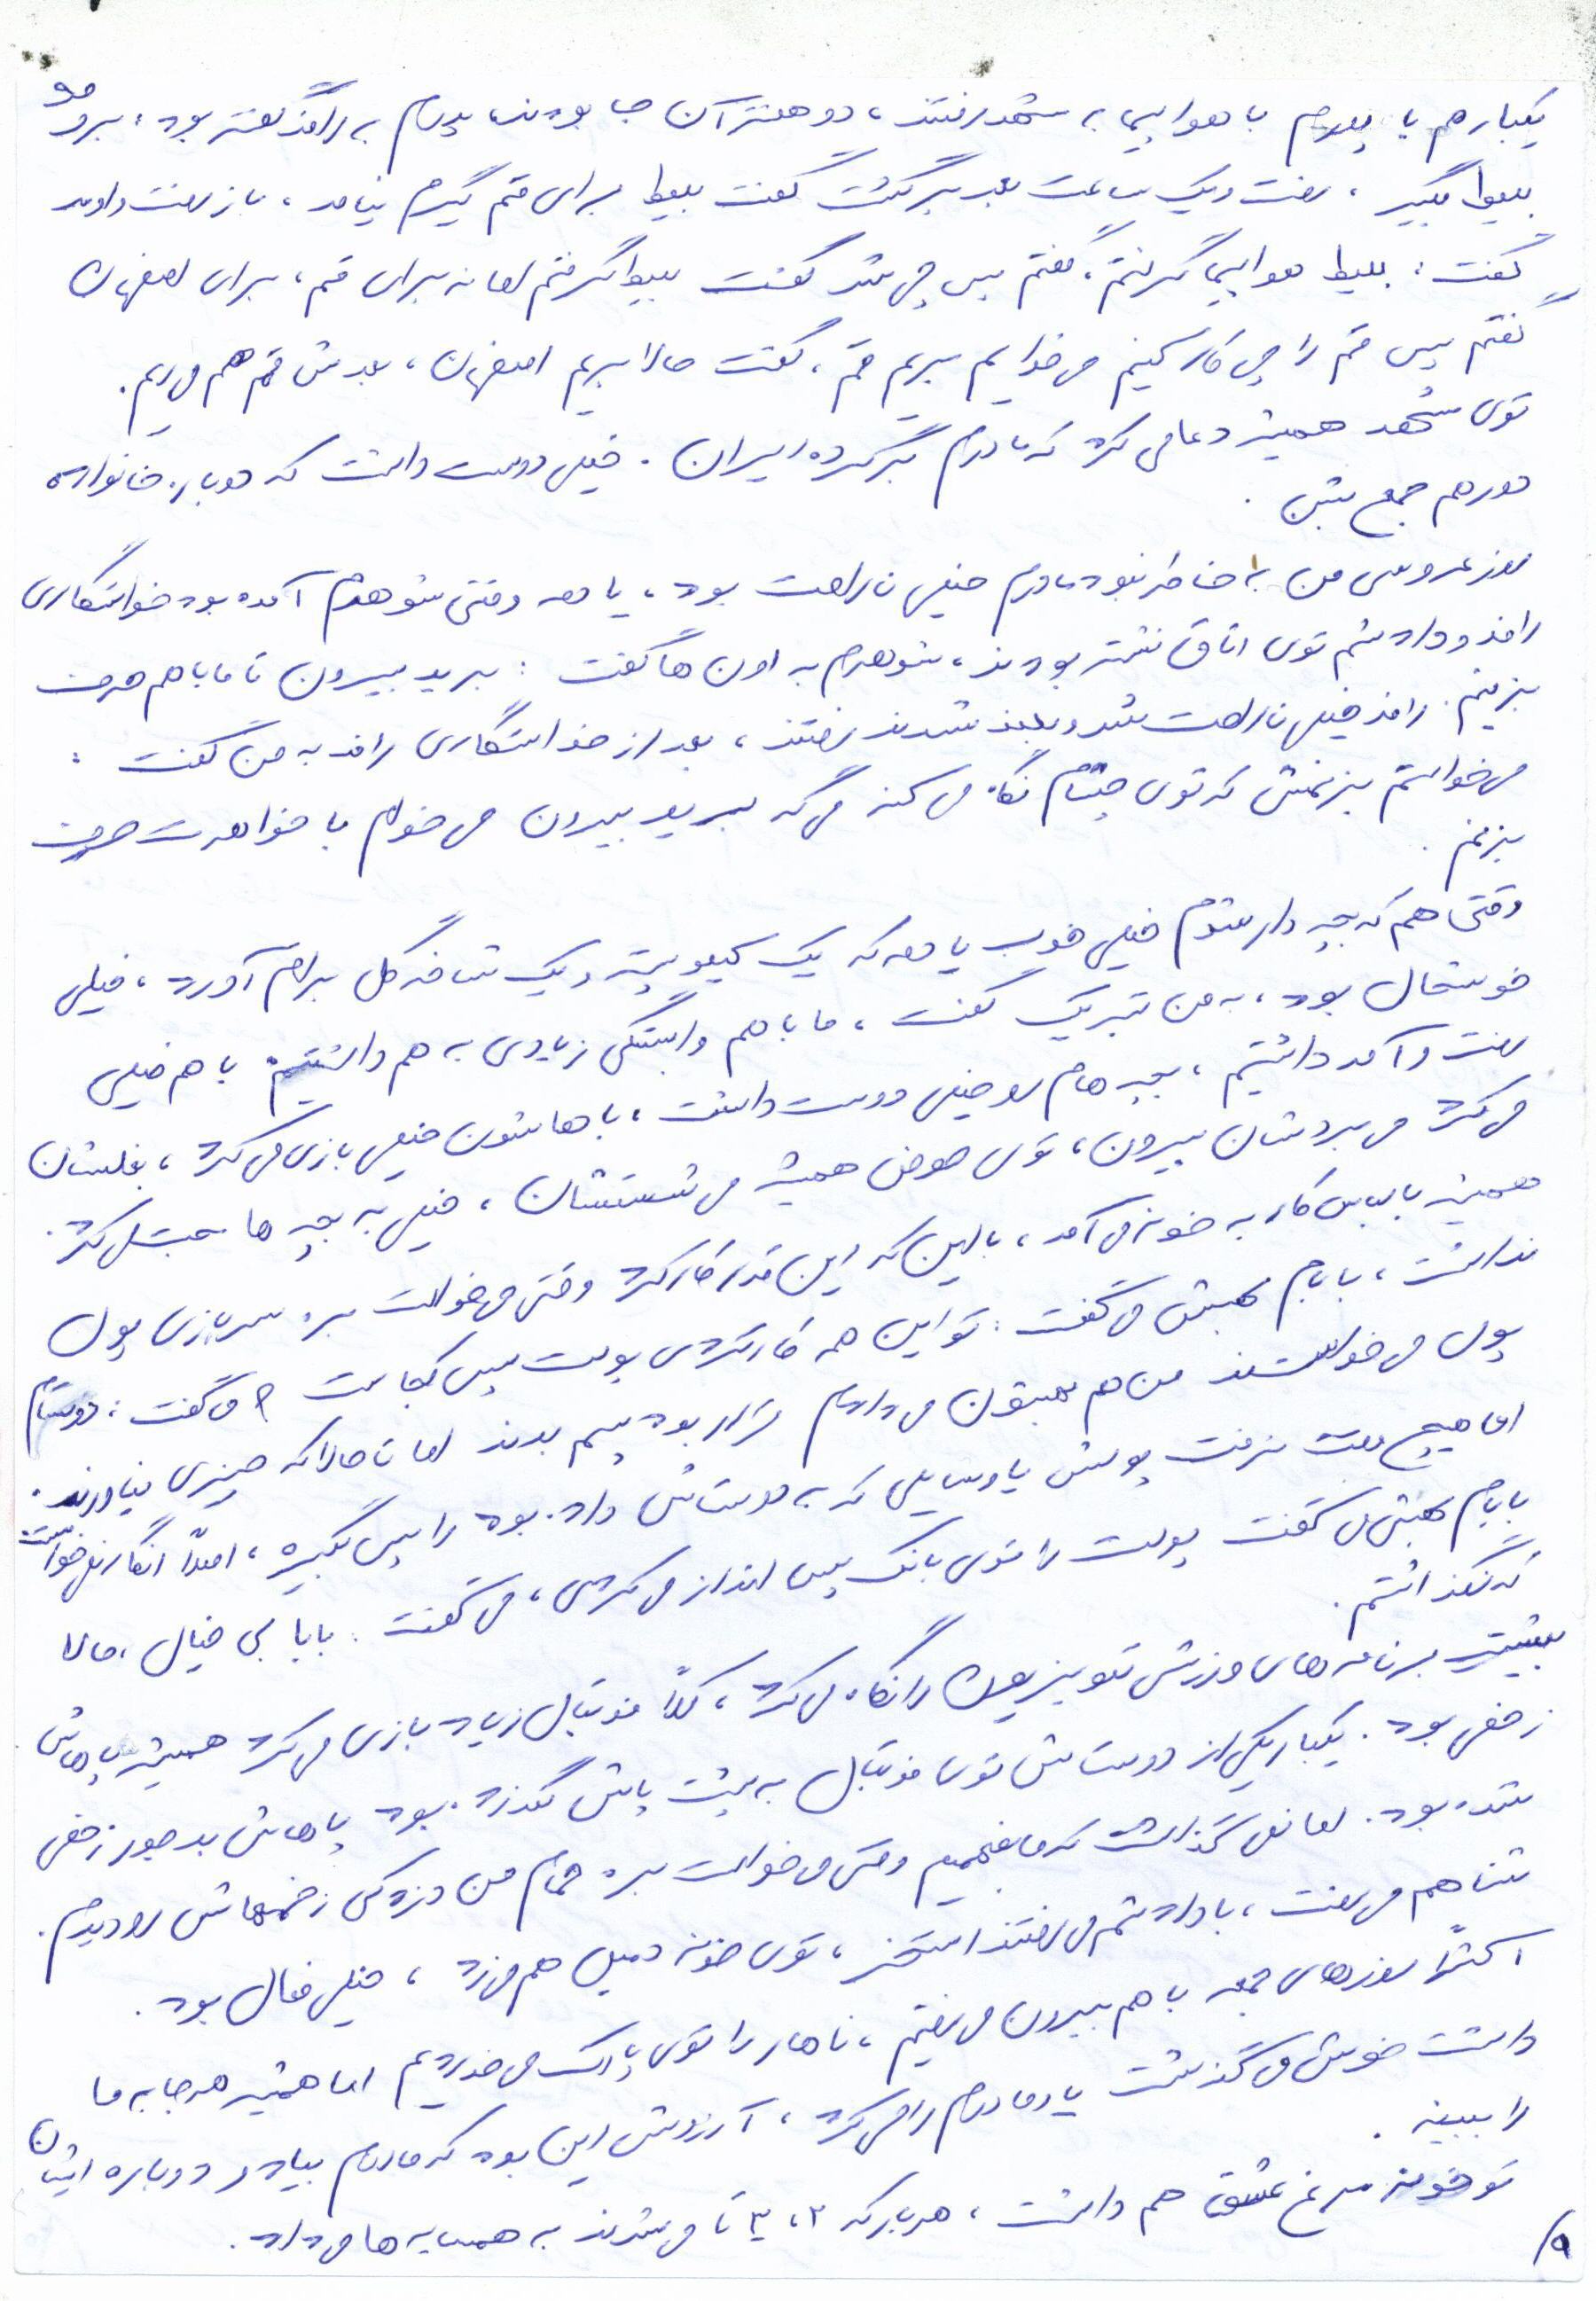 یکبار هم با پدرم با هواپیما به مشهد رفتند، دو هفته آن جا بودند، پدرم به رامز گفته بود: برو
بلیط بگیر، رفت و یک ساعت بعد برگشت گفت بلیط برای قم گیرم نیامد، باز رفت و اومد
گفت: بلیط هواپیما گرفتم، گفتم پس چی شد گفت بلیط گرفتم اما نه برای قم، برای اصفهان
گفتم پس قم را چی کار کنیم می‌خوایم بریم قم، گفت حالا بریم اصفهان، بعدش قم هم می‌ریم.
توی مشهد همیشه دعا می‌کرد که مادرم برگرده ایران. خیلی دوست داشت که دوباره خانواده
دور هم جمع بشن.
روز عروسی من به خاطر نبود مادرم خیلی ناراحت بود، یادمه وقتی شوهرم آمده بود خواستگاری
رامز و وارد شم توی اتاق نشسته بودند، شوهرم به اون ها گفت: برید بیرون تا ما با هم حرف
بزنیم. رامز خیلی ناراحت شد و بلند شدند رفتند، بعد از خواستگاری رامز به من گفت:
می‌خواستم بزنمش که توی چشام نگاه می‌کنه می‌گه برید بیرون می‌خوام با خواهرت حرف
بزنم.
وقتی هم که بچه دار شدم خیلی خوب یادمه که یک کیلو پسته و یک شاخه گل برام آورد، خیلی
خوشحال بود، به من تبریک گفت، ما با هم وابستگی زیادی به هم داشتیم با هم خیلی
رفت و آمد داشتیم، بچه هام رو خیلی دوست داشت، باهاشون خیلی بازی می‌کرد، بغلشان
می‌کرد می‌بردشان بیرون، توی حوض همیشه می‌شستشان، خیلی به بچه ها محبت می‌کرد.
همیشه با لباس کار به خونه می‌آمد، با این که این قدر کار کرد وقتی می‌خواست بره سربازی پول
نداشت، بابام بهش می‌گفت: تو این همه کار کردی پولت پس کجاست؟ می‌گفت: دوستام
پول می‌خواستند من هم بهشون می‌دادم قرار بود پسم بدند اما تا حالا که چیزی نیاوردند.
اما هیچ وقت نرفت پولش یا وسایلی که به دوستاش داده بود را پس بگیره، اصلاً انگار نمی‌خواست
بابام بهش می‌گفت پولت را توی بانک پس انداز می‌کردی، می‌گفت: بابا بی خیال، حالا
که نگذاشتم.
بیشتر برنامه های ورزشی تلویزیون را نگاه می‌کرد، کلاً فوتبال زیاد بازی می‌کرد همیشه پاهاش
زخمی بود. یکبار یکی از دوستاش توی فوتبال به پشت پاش لگد زده بود پاهاش بدجور زخمی
شده بود. اما نمی‌گذاشت که ما بفهمیم وقتی می‌خواست بره حمام من دزدکی زخمهاش رو دیدم.
شنا هم می‌رفت، با وارد شم می‌رفتند استخر، توی خونه دمبل هم می‌زد، خیلی فعال بود.
اکثراً روزهای جمعه با هم بیرون می‌رفتیم، ناهار را توی پارک می‌خوردیم اما همیشه هر جا به ما
داشت خوش می‌گذشت یاد مادرم را می‌کرد، آرزوش این بود که مادرم بیاد و دوباره ایشان
را ببینه.
تو خونه مرغ عشق هم داشت، هر بار که ۲، ۳ تا می‌شدند به همسایه ها می‌داد.
۹/